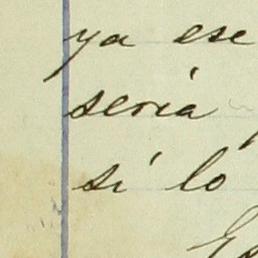 ya ese
sería
sí lo